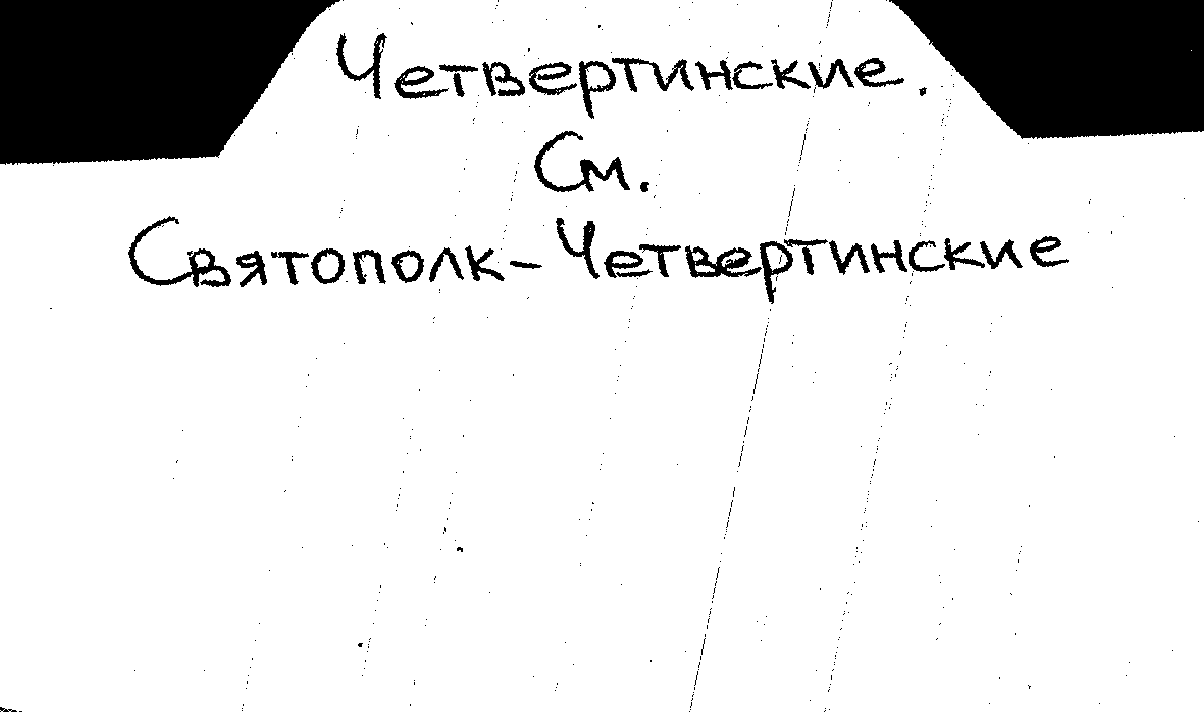 Четвертинские.
См.
Святополк-Четвертинские